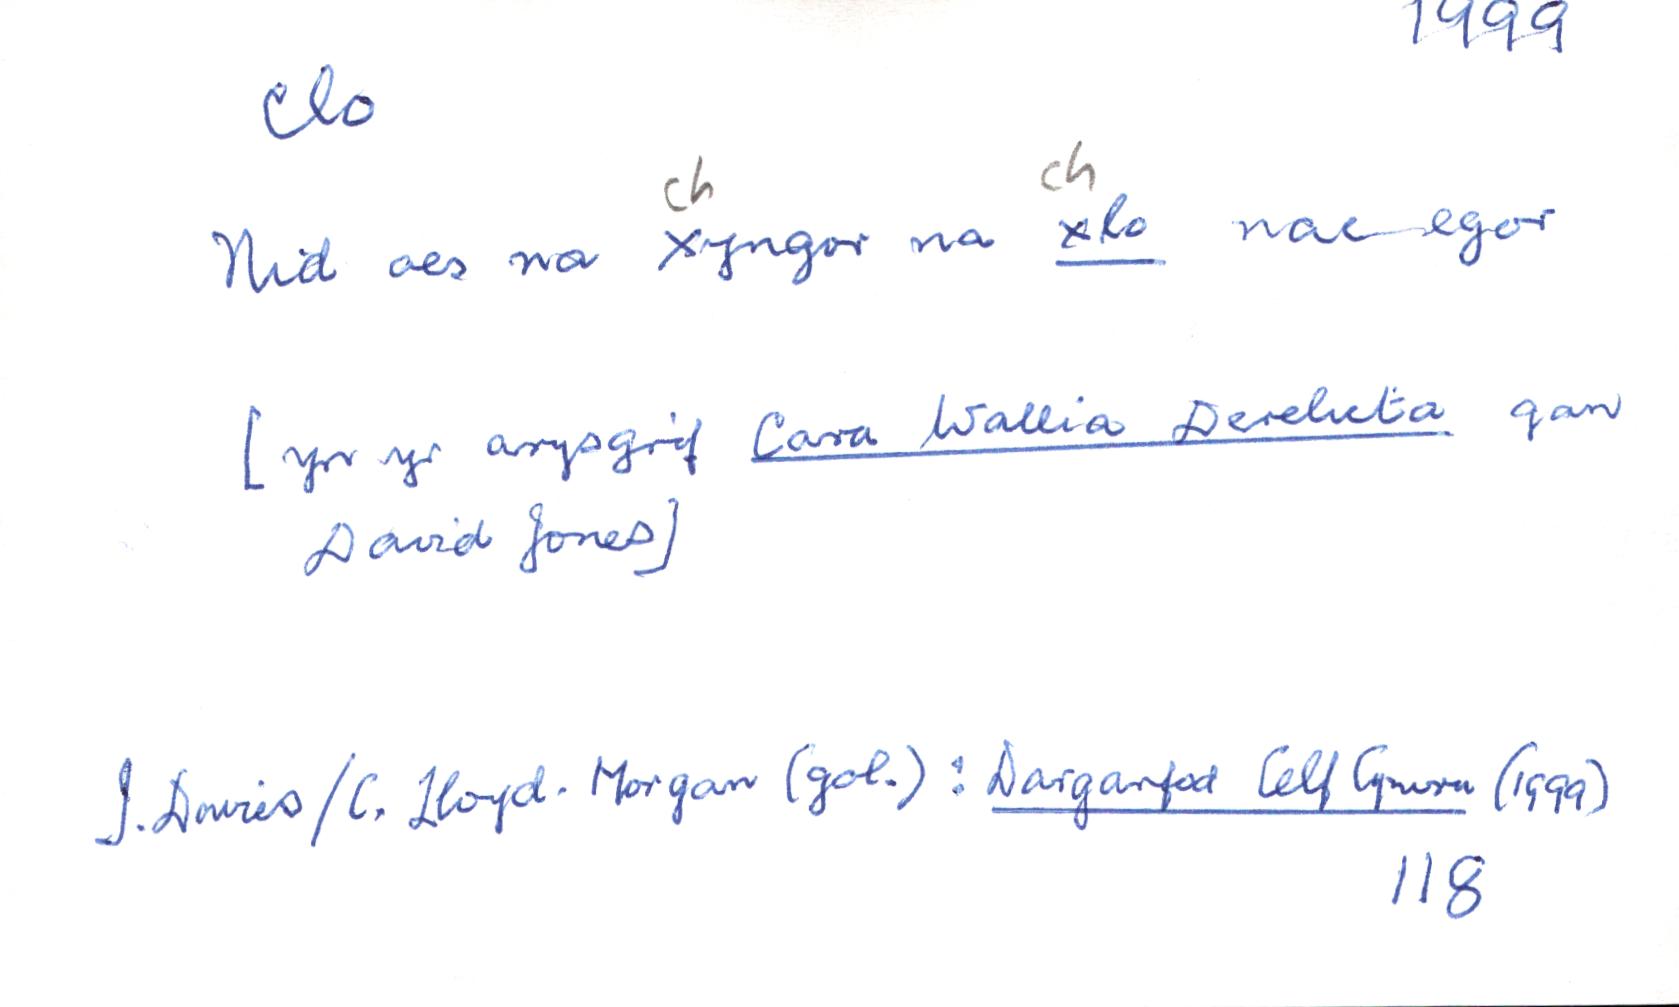 1999
clo
ch ch
Nid oes na xyngor na xlo nac egor
[yn yr arysgrif Cara Wallia Derelicta gan
David Jones]
I. Davies/C. Lloyd-Morgan (gol.): Darganfod Celf Cymru (1999)
118